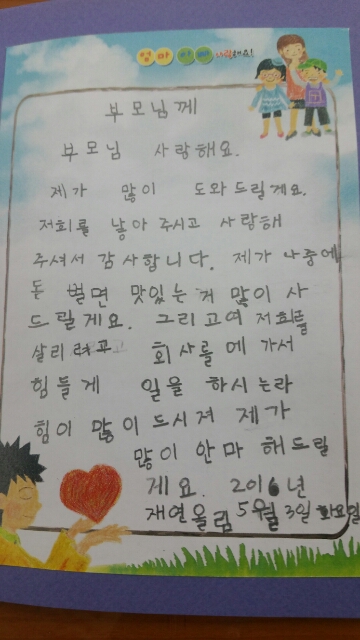 엄마 아빠 사랑해요!
부모님께
부모님 사랑해요.
제가 많이 도와드릴게요.
저희를 낳아 주시고 사랑해
주셔서 감사합니다. 제가 나중에
돈 벌면 맛있는거 많이 사
드릴게요. 그리고여 저희를
살리려고 회사를에 가서
힘들게 일을 하시는라
힘이 많이드시져 제가
많이 안마 해드릴
게요. 2016년
재연올림 5월 3일 화요일